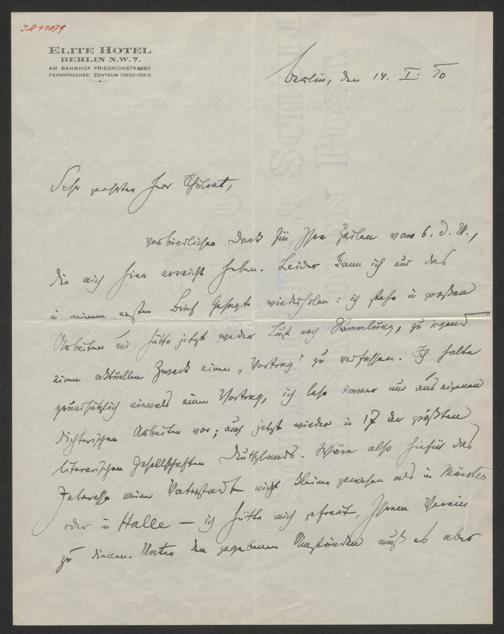 IN 47079
ELITE HOTEL
BERLIN N.W. 7.
AM BAHNHOF FRIEDRICHSTRASSE
FERNSPRECHER: ZENTRUM 10400-10410
Berlin, den 14. I. 30
Sehr geehrter Herr Schulrat,
verbindlichen Dank für Ihre Zeilen vom 6. d. M.,
die mich hier erreicht haben. Leider kann ich nur das
in meinem ersten Brief Gesagte wiederholen: ich stehe in großen
Arbeiten und hätte jetzt weder Lust noch Sammlung, zu irgend
einem aktuellen Zweck einen „Vortrag" zu verfassen. Ich halte
grundsätzlich niemals einen Vortrag, ich lese immer nur aus eigenen
dichterischen Arbeiten vor; auch jetzt wieder in 17 der größten
literarischen Gesellschaften Deutschlands. Wäre also hiefür das
Interesse meiner Vaterstadt nicht kleiner gewesen als in Münster
oder in Halle — ich hätte mich gefreut, Ihrem Verein
zu dienen. Unter den gegebenen Umständen muß es aber